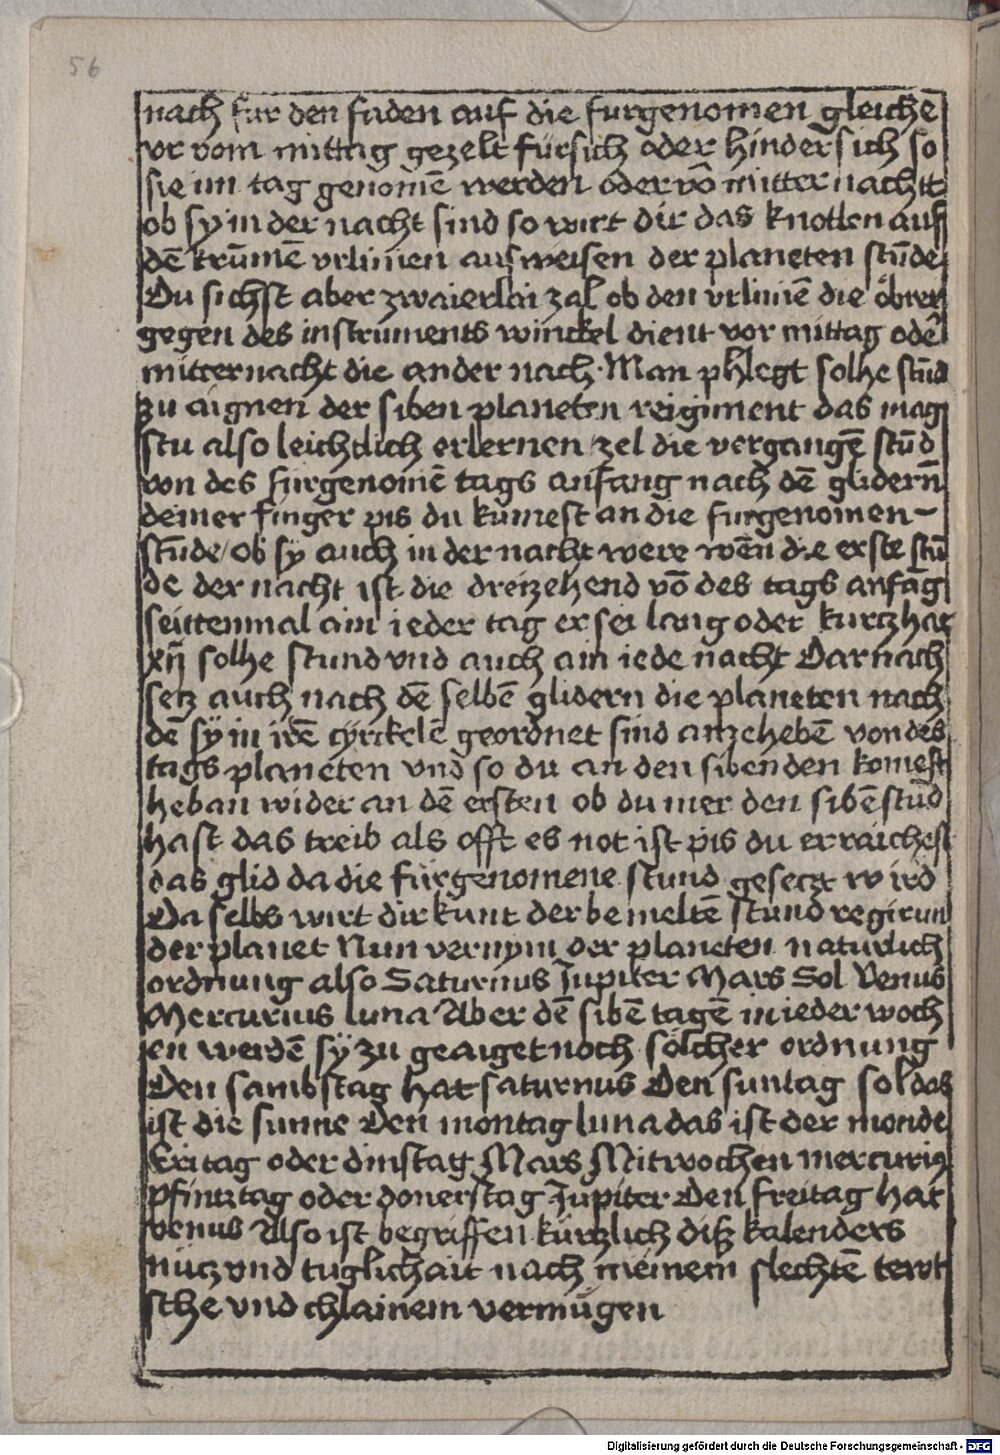 56
nach fur den faden auf die furgenomen gleiche
vr vom mittag gezelt fürsich oder hindersich so
sie im tag genomē werden oder vō mitter nachtt
ob sy in der nacht sind so wirt dir das knotlen auff
dē krūmē vrlinien aufweisen der planeten stūde
Du sichst aber zwaierlai zal ob den vrliniē die öbrer
gegen des instruments winckel dient vor mittag odē
mitternacht die ander nach · Man phlegt solhe stūd
zu aignen der siben planeten reigiment das mag
stu also leichtlich erlernen zel die vergangē stūd
von des furgenomē tags anfang nach dē glidern̄
deiner finger pis du kumest an die furgenomen
stūde / ob sÿ auch in der nacht were wēn die erste stū
de der nacht ist die dreizehend vō des tags anfāg
seittenmal ain ieder tag er sei lang oder kurcz hat
xij solhe stund vnd auch am iede nacht Darnach
secz auch nach dē selbē glidern die planeten nach
dē sÿ in irē cyrckelē geordnet sind anzehebē von des
tags planeten vnd so du an den sibenden komest
heb an wider an dē ersten ob du mer den sibē stūd
hast das treib als offt es not ist pis du erraichest
das glid da die fürgenomene stund geseczt wird
Da selbs wirt dir kunt der bemeltē stund regirun
der planet Nun vernym der planeten naturlich
ordnung also Saturnus Jupiter Mars Sol Venus
Mercurius luna Aber dē sibē tagē in ieder woch
en werdē sÿ zu geaiget noch sölcher ordnung
Den sambstag hat saturnus Den suntag sol das
ist die sunne Den montag luna das ist der monde
Eritag oder dinstag Mars Mitwochen mercurius
pfintztag oder donerstag Jupiter Den freitag hat
venus Also ist begriffen kürczlich diß kalenders
nücz vnd tuglichait nach meinem slechtē tewt
sche vnd chlainem vermügen
Digitalisierung gefördert durch die Deutsche Forschungsgemeinschaft - DFG